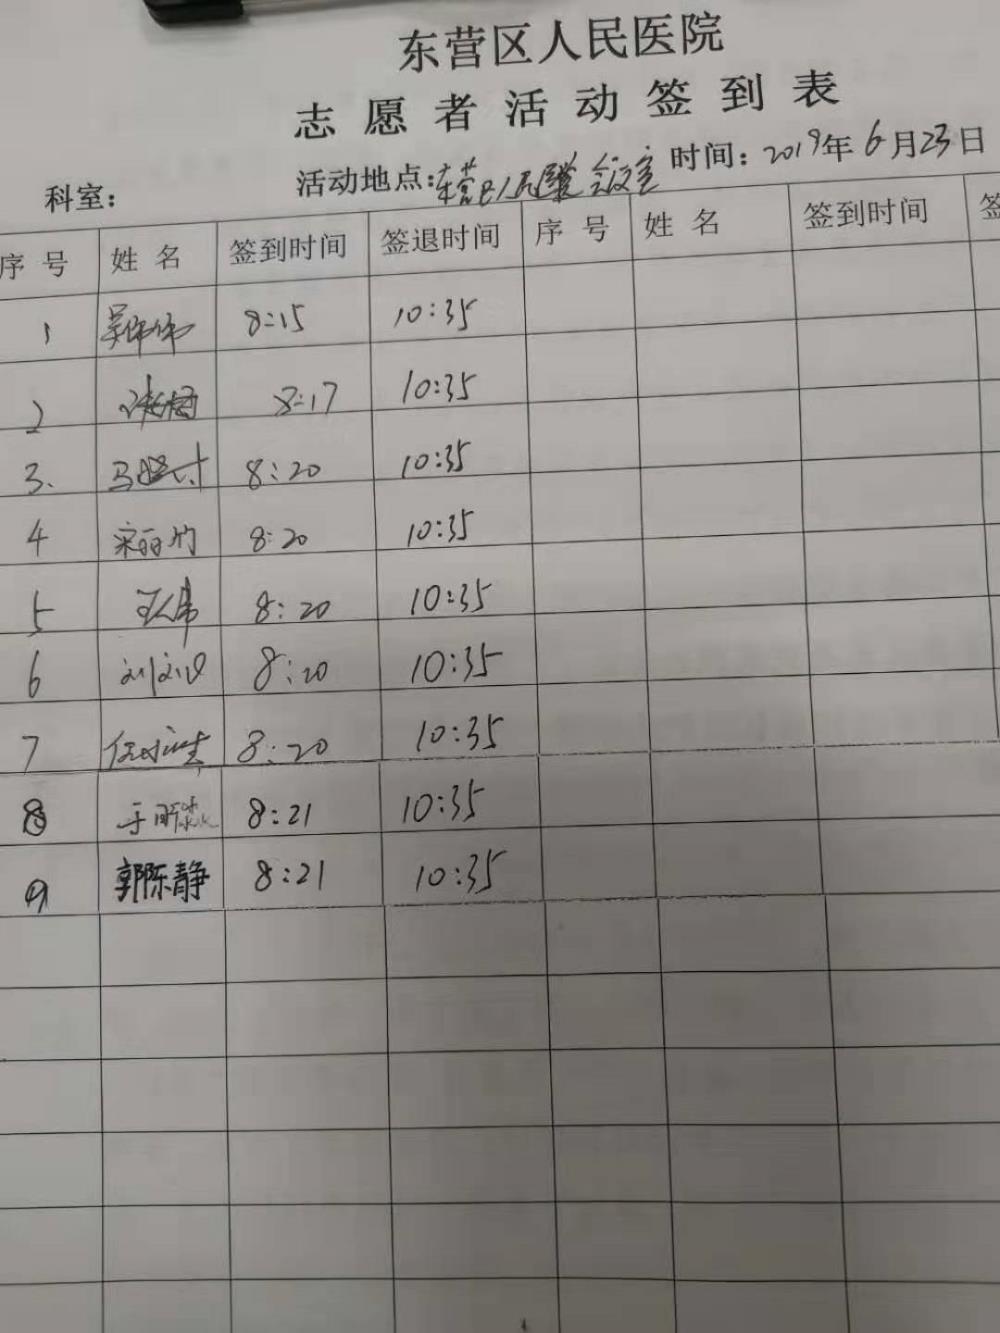 东营区人民医院
志愿者活动签到表
科室： 活动地点：东营区人民医院会议室 时间：2019年6月23日
序号 姓名 签到时间 签退时间 序号 姓名 签到时间 签
1 8:15 10:35
2 8:17 10:35
3. 马 8:20 10:35
4 宋丽 8:20 10:35
5 8:20 10:35
6 刘 8:20 10:35
7 任 8:20 10:35
8 于 8:21 10:35
9 郭陈静 8:21 10:35